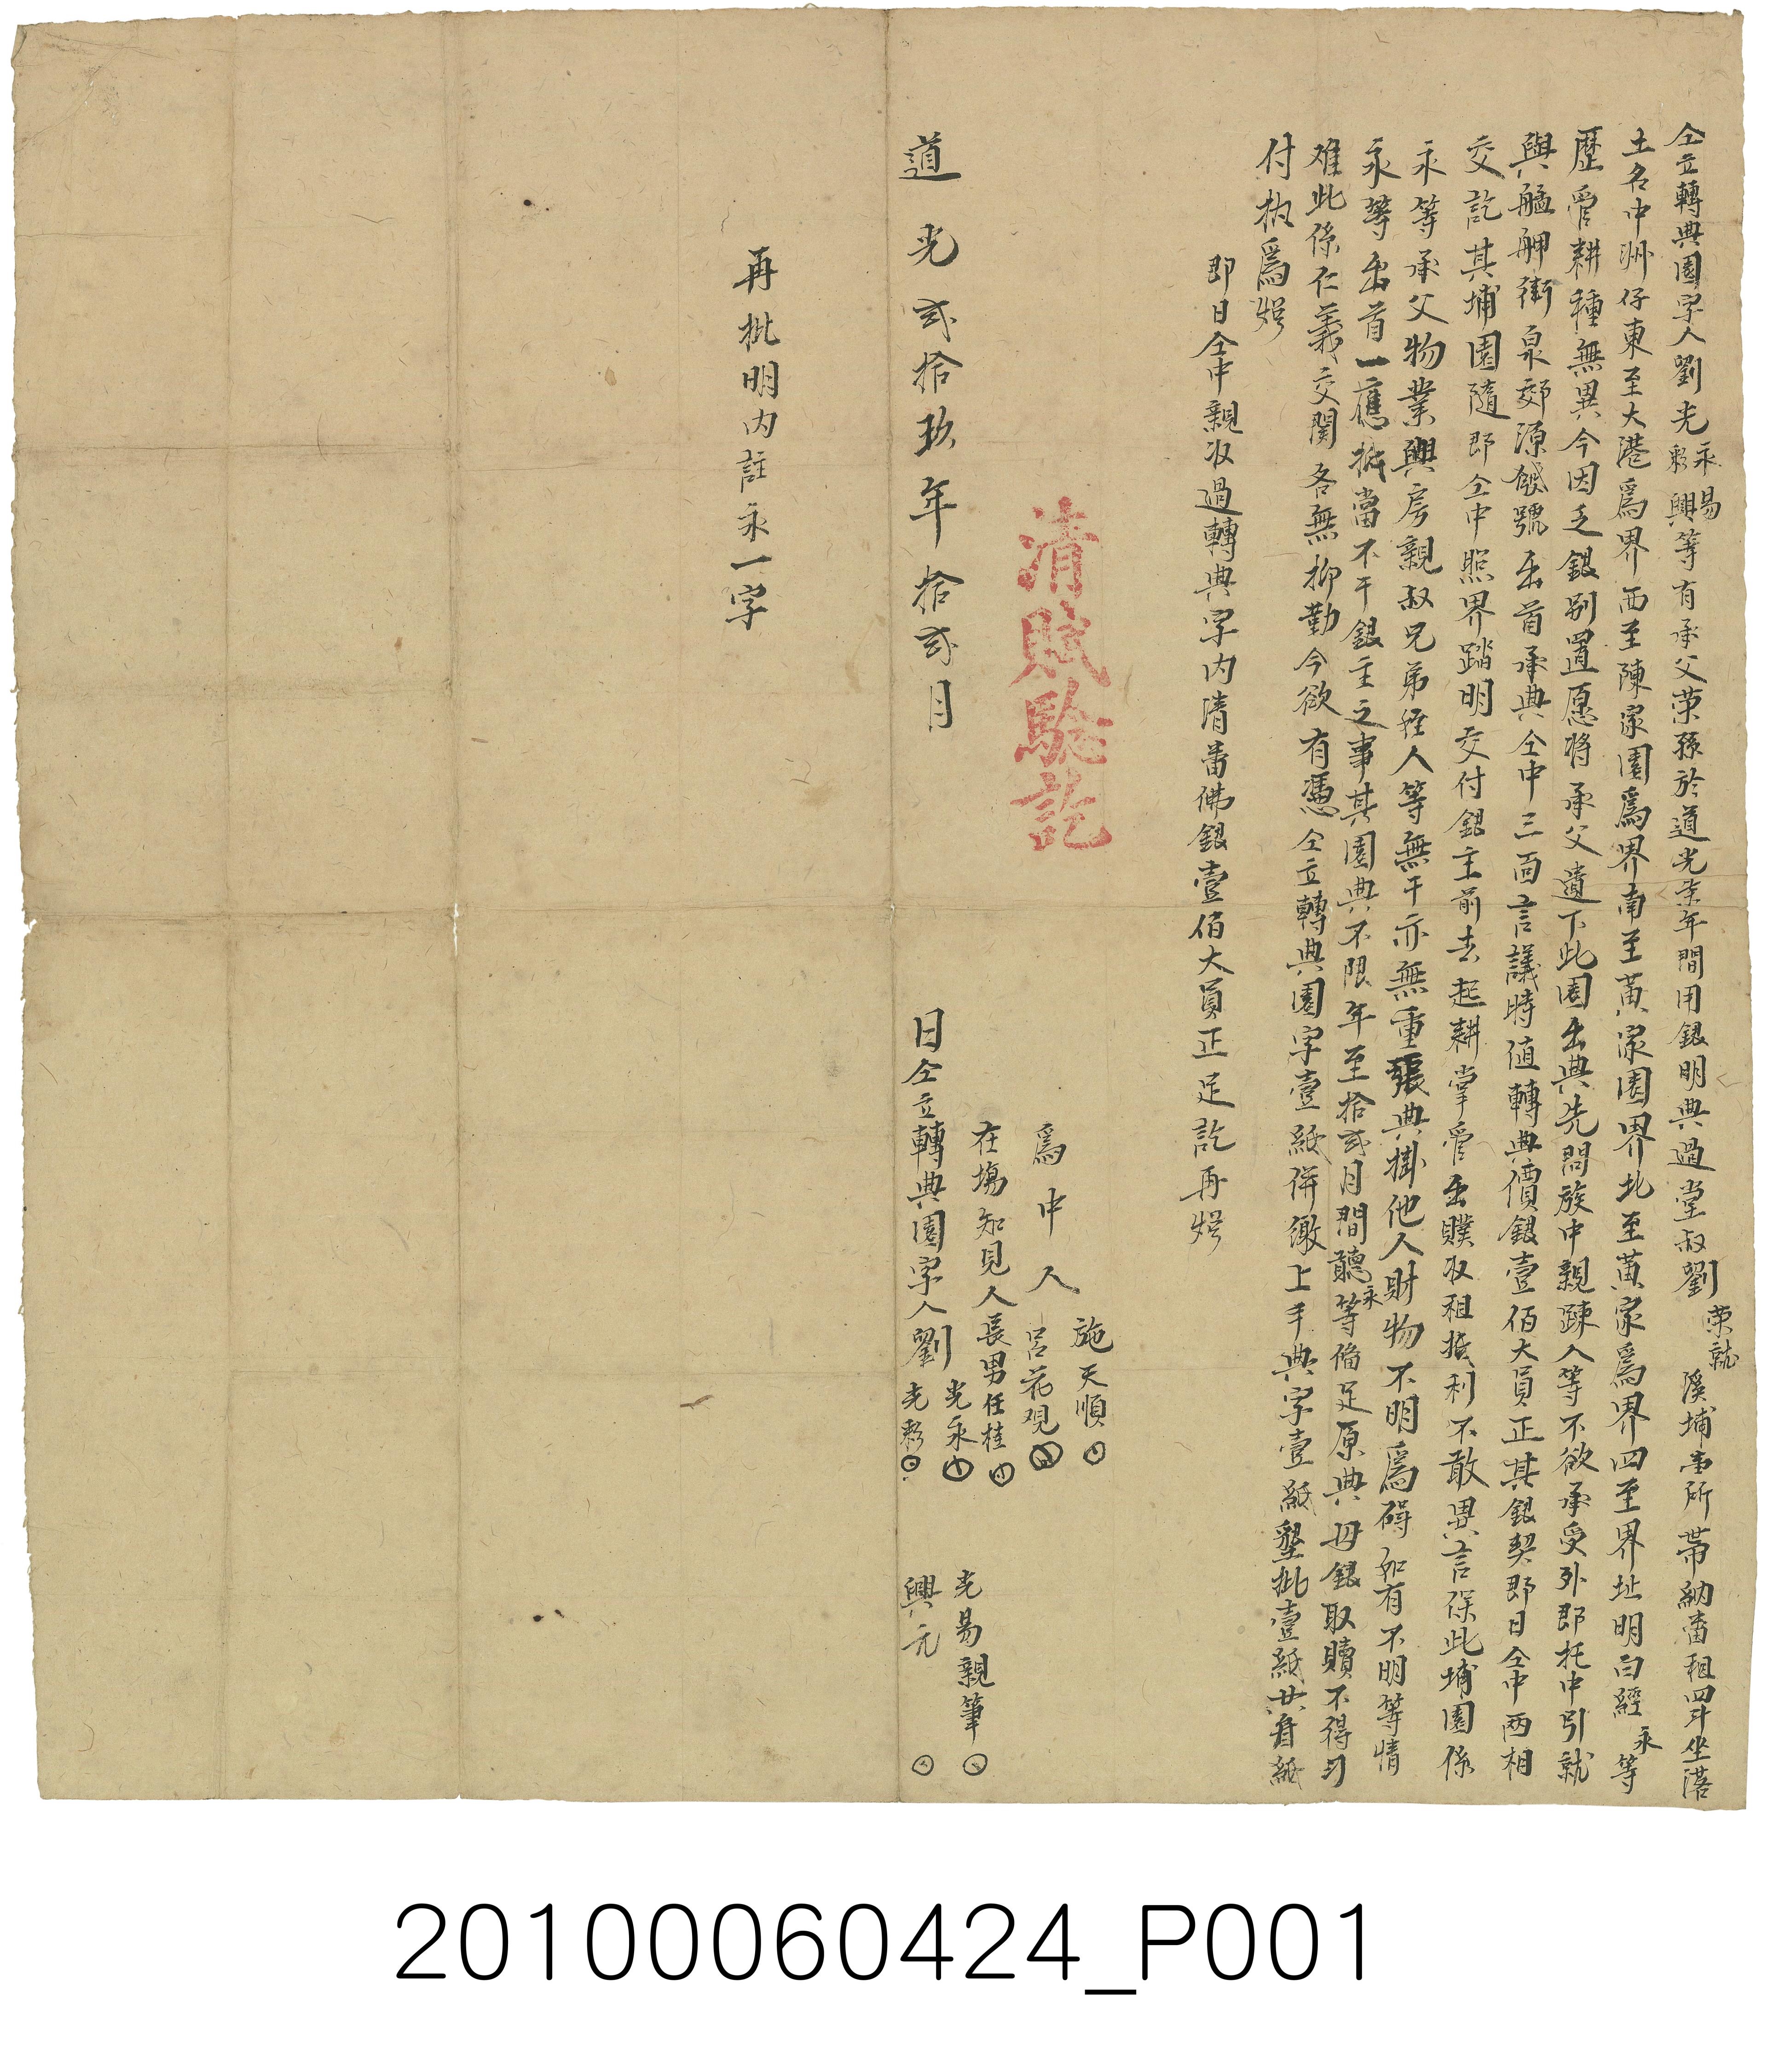 仝立轉典園字人劉光永彩易興等有承父荣孫於道光柒年間用銀明典過堂叔劉荣就溪埔壹所帶納畨租四斗坐落
土名中洲仔東至大港爲界西至陳家園爲界南至黃家園界北至黃家爲界四至界址明白經永等
歷管耕種無異今因乏銀別置愿将承父遺下此園出典先問族中親踈人等不欲承受外即托中引就
與艋舺街泉郊源號出首承典仝中三面言議時值轉典價銀壹佰大員正其銀契即日仝中两相
交訖其埔園隨即仝中照界踏明交付銀主前去起耕掌管出贌收租抵利不敢異言保此埔園係
永等承父物業與房親叔兄弟侄人等無干亦無重張典掛他人財物不明爲碍如有不明等情
永等出首一應抵當不干銀主之事其園典不限年至拾弍月間聽永等俻足原典母銀取贖不得刁
难此係仁義交関各無抑勒今欲有憑仝立轉典園字壹紙併繳上手典字壹紙墾批壹紙共叁紙
付执爲炤
即日仝中親收過轉典字内清畨佛銀壹佰大員正足訖再炤
清賦驗訖
施天順
爲中人
呂花观
在塲知見人長男任桂
道光弍拾玖年拾弍月
日仝立轉典園字人劉光永
光彩
光易親筆
興元
再批明内註永一字
20100060424_P001